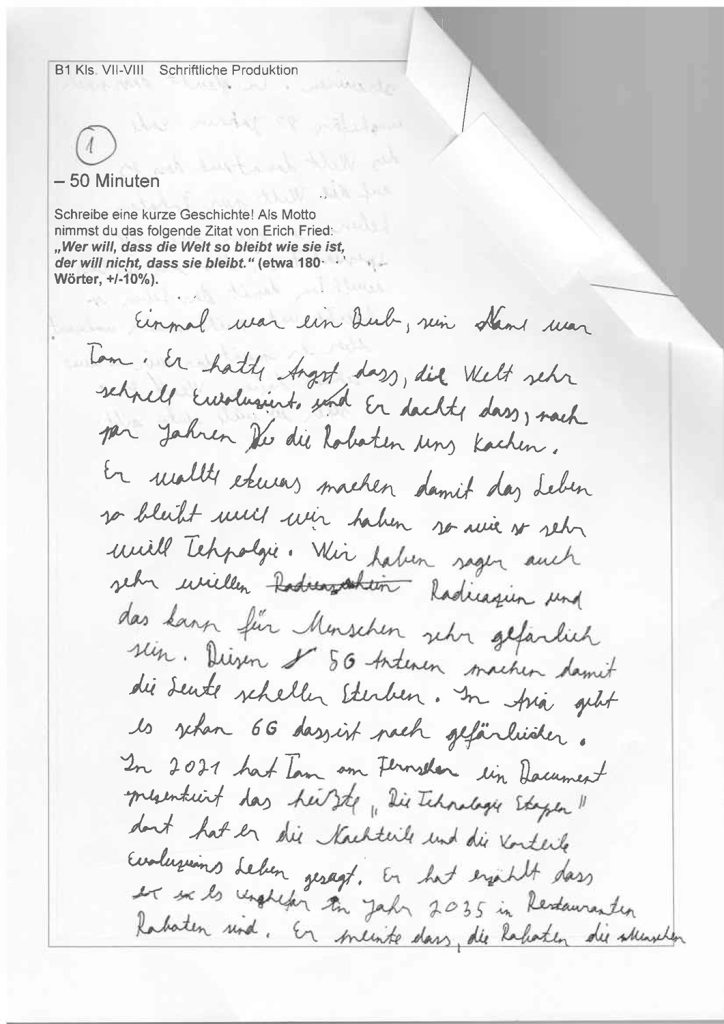 B1 Kls. VII-VIII Schriftliche Produktion
1
– 50 Minuten
Schreibe eine kurze Geschichte! Als Motto
nimmst du das folgende Zitat von Erich Fried:
„Wer will, dass die Welt so bleibt wie sie ist,
der will nicht, dass sie bleibt." (etwa 180
Wörter, +/-10%).
Einmal war ein Bub, sein Name war
Tom. Er hatte Angst dass, die Welt sehr
schnell Ewoluziert. und Er dachte dass, nach
par Jahren die Robaten uns Kochen.
Er wollte etwas machen damit das Leben
so bleibt weil wir haben so wie so sehr
wiell Tehnolgie. Wir haben sogar auch
sehr wiellen Radicazien und
das kann für Menschen sehr gefärlich
sein. Diesen 5G Antenen machen damit
die Leute scheller Sterben. In Asia gebt
es schon 6G dass ist noch gefärlicher.
In 2021 hat Tom am Fernseher ein Document
presentiert das heißte „Die Tehnologie Etapen"
dort hat er die Nachteile und die Vorteile
Ewoluzions Leben gesagt. Er hat erzählt dass
es unghefer in Jahr 2035 in Restauranten
Robaten sind. Er meinte dass, die Robaten die Menschen